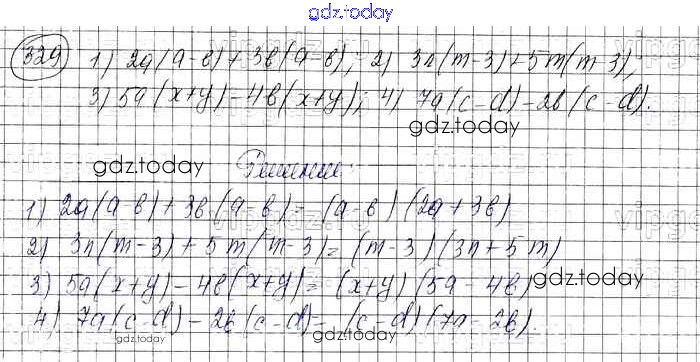 gdz.today
329 1) 2a(a-в)+3в(a-в); 2) 3n(m-3)+5m(m-3);
3) 5a(x+y)-4в(x+y); 4) 7a(c-d)-2в(c-d).
gdz.today
gdz.today
Решение:
1) 2a(a-в)+3в(a-в)=(a-в)(2a+3в)
2) 3n(m-3)+5m(m-3)=(m-3)(3n+5m)
3) 5a(x+y)-4в(x+y)=(x+y)(5a-4в)
gdz.today
4) 7a(c-d)-2в(c-d)=(c-d)(7a-2в).
gdz.today
gdz.today